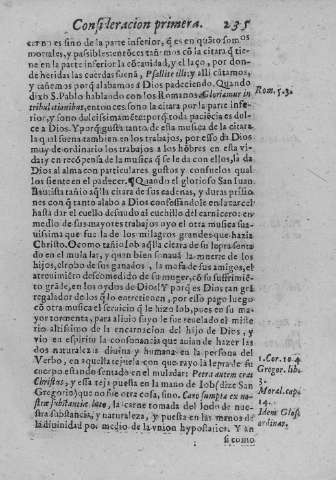 Consideracion primera. 235
no es sino de la parte inferior, q̃ es en quãto somos
mortales, y passibles: entõces tañimos cõ la citara q̃ tie-
ne en la parte inferior la cõcauidad, y el laço, por don-
de heridas las cuerdas suenã, Psallite illi: y alli cãtamos,
y tañemos por q̃ alabamos à Dios padeciendo. Quando
dixo S. Pablo hablando con los Romanos: Gloriamur in
tribulationibus, entonces sono la citara por la parte infe-
rior, y sono dulcissimamẽte: porq̃ toda paciẽcia es dul-
ce a Dios. Y porq̃ gusta tanto de esta musica de la citara,
la qual suena tambien en los trabajos, por esso da Dios
muy de ordinario los trabajos a los hõbres en esta vi-
da y en recõpensa de la musica q̃ se le da con ellos, la da
Dios al alma con particulares gustos y consuelos qual
los siente en el padecer. ¶Quando el glorioso San Iuan
Bautista tañio aq̃lla citara de sus cadenas, y duras prisio-
nes con q̃ tanto alabo a Dios confessãdole en la carcel
hasta dar el cuello desnudo al cuchillo del carnicero: en
medio de sus mayores trabajos oyo el otra musica sua
uissima que fue la de los milagros grandes que hazia
Christo. O como tañio Iob aq̃lla citara de su lo presenta
do en el muladar, y quan bien sonauã la muerte de los
hijos, el robo de sus ganados, la mofa de sus amigos, el
atreuimiẽto descomedido de su muger, cõ su sufrimiẽ-
to grãde, en los oydos de Dios! Y porq̃ es Dios tan grã
regalador de los q̃ lo entretienen, por esso pago luego
cõ otra musica el seruicio q̃ le hizo Iob, pues en su ma
yor tormenta, para aliuio suyo le fue reuelado el miste
rio altissimo de la encarnacion del hijo de Dios, y
vio en espiritu la consonancia que auian de hazer las
dos naturalezas diuina y humana en la persona del
Verbo, en aquella tejuela con que rayo la lepra de su
cuerpo estando sentado en el muladar: Petra autem erat
Christus, y essa teja puesta en la mano de Iob (dize San
Gregorio) que no fue otra cosa, sino, Caro sumpta ex no-
stræ substantiæ luto, la carne tomada del lodo de nue-
stra substancia, y naturaleza, y puesta en las manos de
la diuinidad por medio de la vnion hypostatica. Y an
si como
Rom. 5. 3.
1. Cor. 10. 4
Gregor. lib.
3.
Moral. capi
14.
Idem Glos
ordinar.